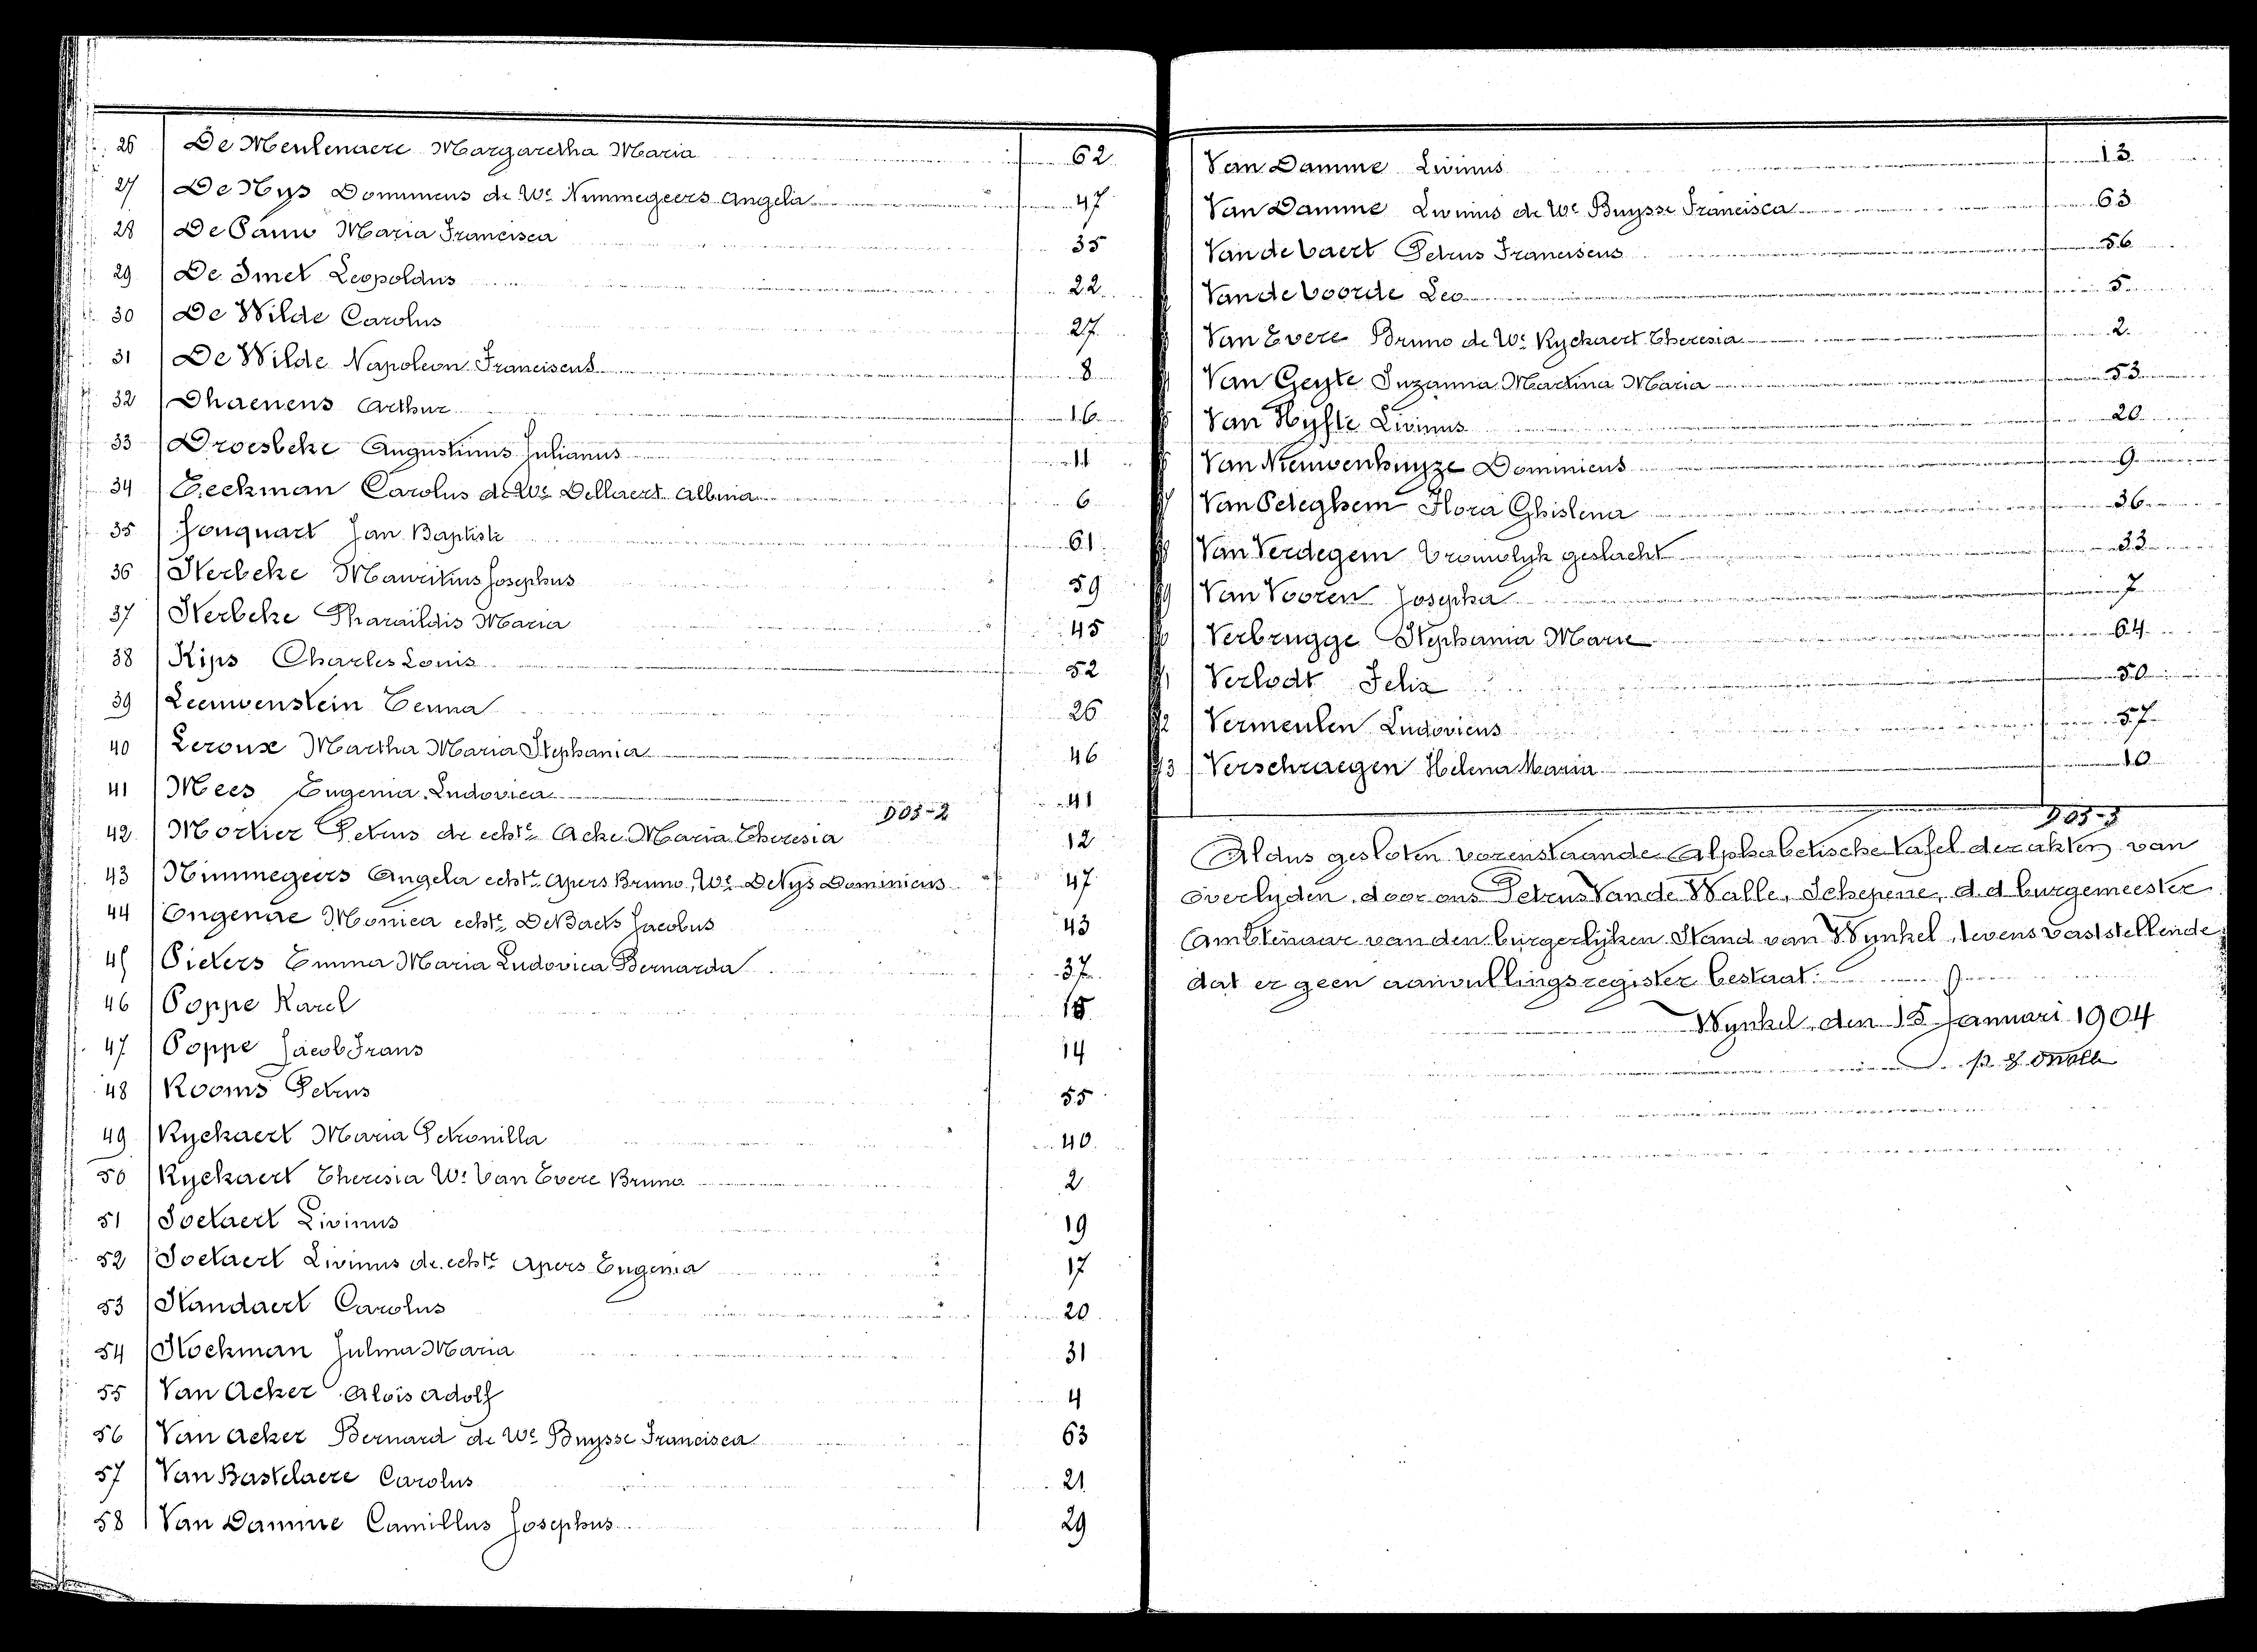 26 De Meulenaere Margaretha Maria 62
27 De Nys Dominicus de We Nimmegeers Angela 47
28 De Pauw Maria Francisca 35
29 De Smet Leopoldus 22
30 De Wilde Carolus 27
31 De Wilde Napoleon Franciscus 8
32 Dhaenens Arthur 16
33 Droesbeke Augustinus Julianus 11
34 Eeckman Carolus de We Dellaert Albina 6
35 Fouquart Jan Baptiste 61
36 Herbeke Mauritius Josephus 59
37 Herbeke Pharaildis Maria 45
38 Kips Charles Louis 52
39 Leeuwenstein Emma 26
40 Leroux Martha Maria Stephania 46
41 Mees Eugenia Ludovica 41
D05-2
42 Mortier Petrus de echte Acke Maria Theresia 12
43 Nimmegeers Angela echte Apers Bruno, We DeNys Dominicus 47
44 Ongenae Monica echte DeBaets Jacobus 43
45 Pieters Emma Maria Ludovica Bernarda 37
46 Poppe Karel 15
47 Poppe Jacob Frans 14
48 Rooms Petrus 55
49 Ryckaert Maria Petronilla 40
50 Ryckaert Theresia We Van Evere Bruno 2
51 Soetaert Livinus 19
52 Soetaert Livinus de echte Apers Eugenia 17
53 Standaert Carolus 20
54 Stockman Julma Maria 31
55 Van Acker Alois Adolf 4
56 Van Acker Bernard de We Buysse Francisca 63
57 Van Bastelaere Carolus 21
58 Van Damme Camillus Josephus 29
Van Damme Livinus 13
Van Damme Livinus de We Buysse Francisca 63
Van de Caert Petrus Franciscus 56
Van de Voorde Leo 5
Van Evere Bruno de We Ryckaert Theresia 2
Van Geyte Suzanna Martina Maria 53
Van Hyfte Livinus 20
Van Nieuwenhuyze Dominicus 9
Van Peteghem Flora Ghislena 36
Van Verdegem Vrouwelyk geslacht 33
Van Vooren Josepha 7
Verbrugge Stephania Marie 64
Verlodt Felix 50
2 Vermeulen Ludovicus 57
3 Verschraegen Helena Maria 10
D05-3
Aldus gesloten vorenstaande Alphabetische tafel der akten van
overlyden door ons Petrus Van de Walle, Schepene, d.d burgemeester
Ambtenaar van den burgerlyken Stand van Wynkel, tevens vaststellende
dat er geen aanvullingsregister bestaat.
Wynkel, den 15 Januari 1904